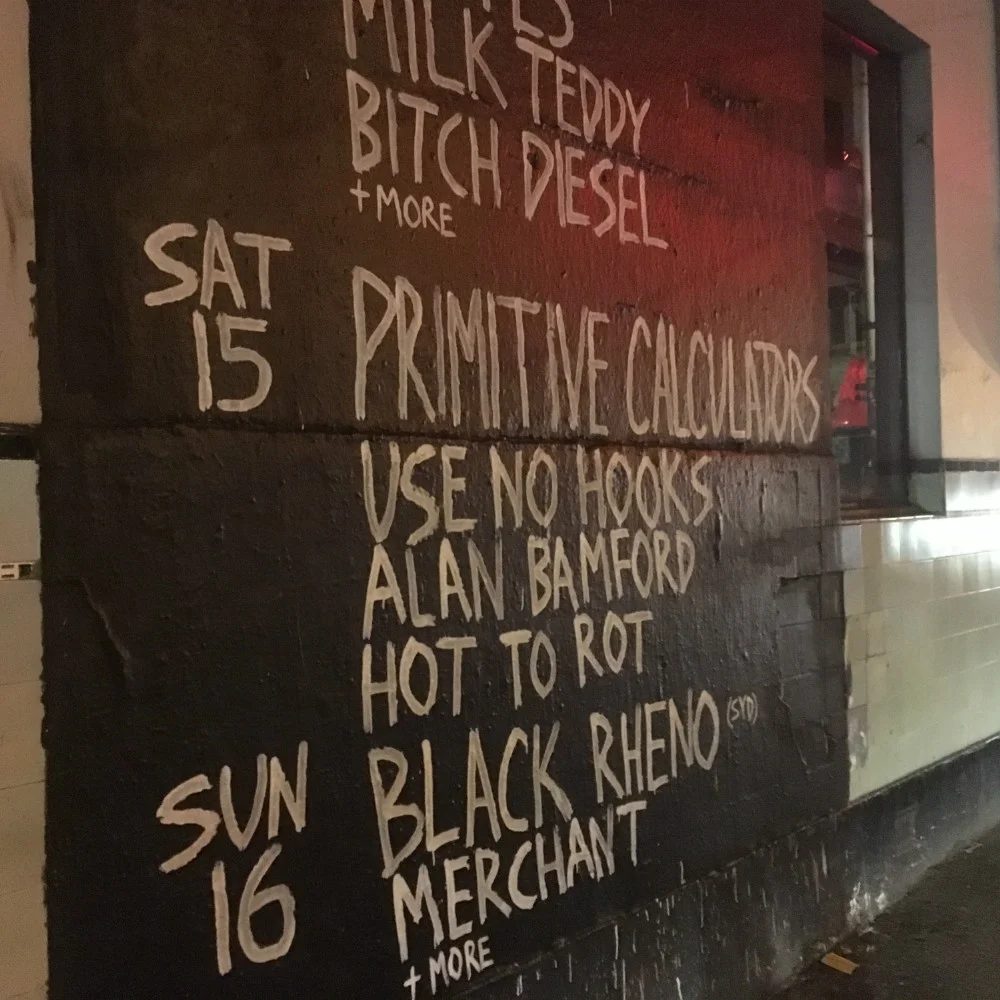 MILK TEDDY
BITCH DIESEL
+ MORE
SAT
15
PRIMITIVE CALCULATORS
USE NO HOOKS
ALAN BAMFORD
HOT TO ROT
SUN
16
BLACK RHENO (SYD)
MERCHANT
+ MORE